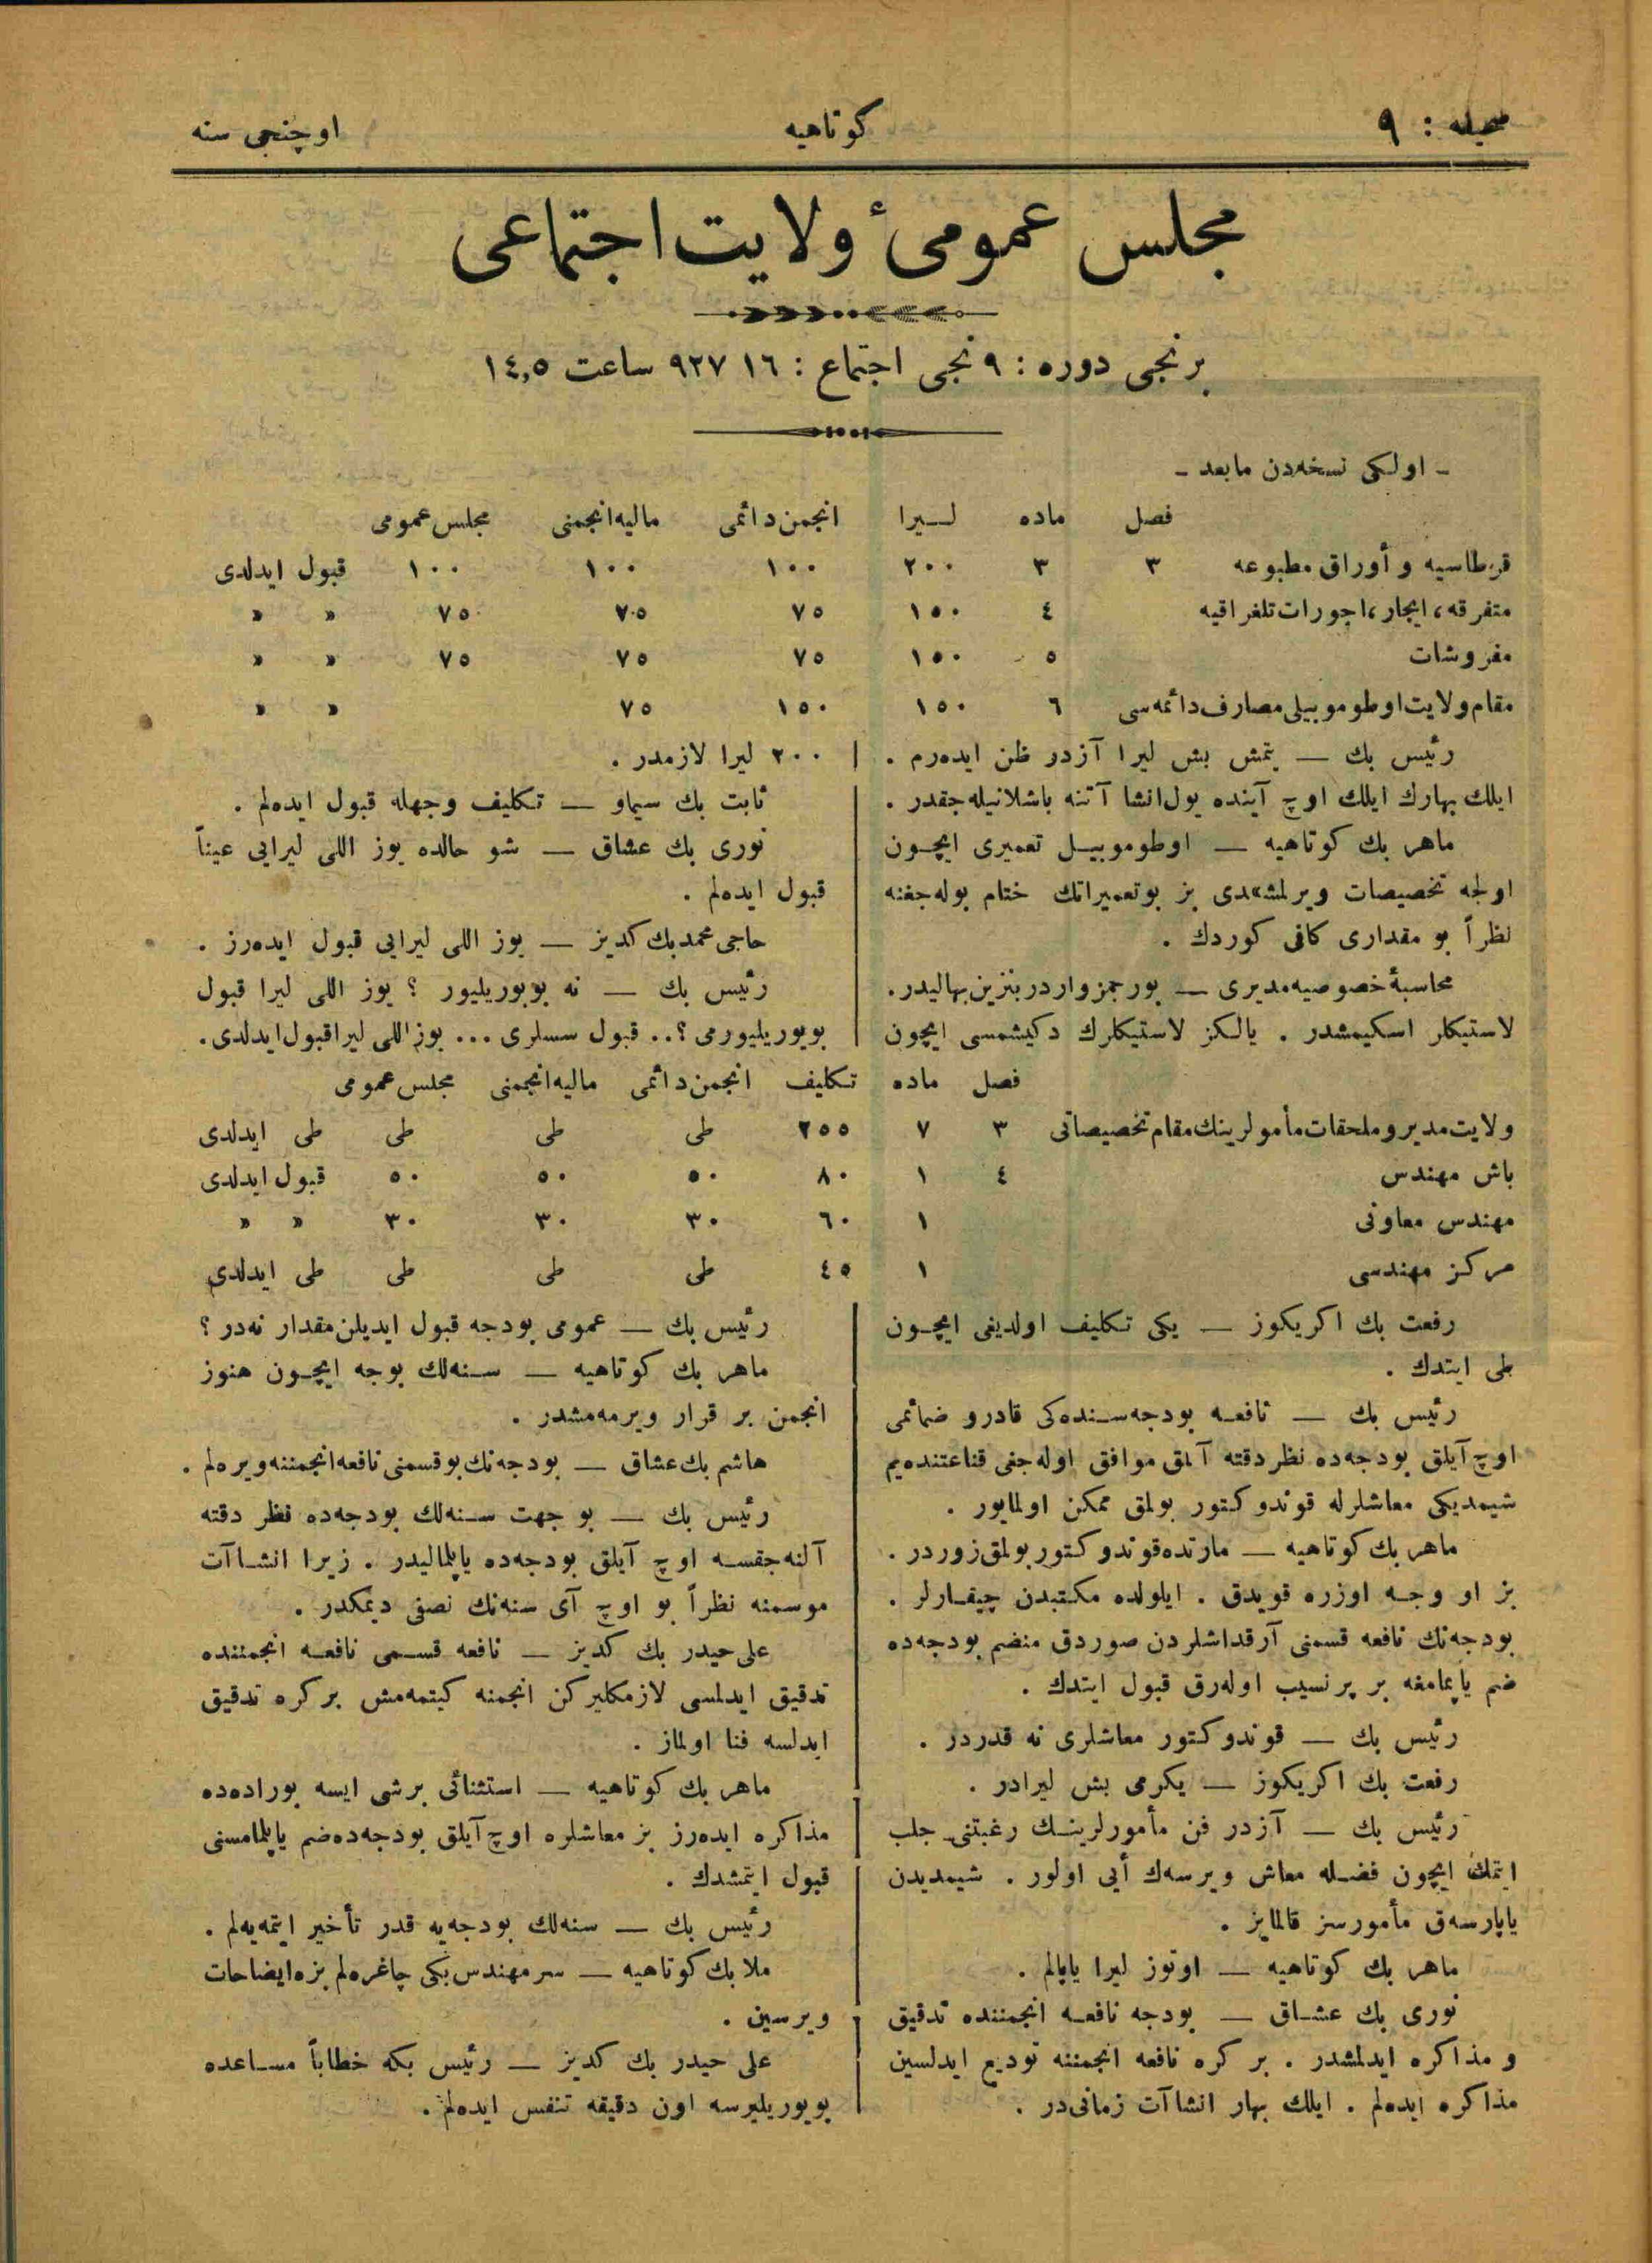 صحيفه : ٩
كوتاهيه
اوچنجی سنه
مجلس عمومیٔ ولايت اجتماعی
برنجی دوره : ٩ نجی اجتماع : ١٦ ٩٢٧ ساعت ١٤,٥
ـ اولكی نسخه‌دن مابعد ـ
فصل ماده ليرا انجمن دائمی ماليه انجمنی مجلس عمومی
قرطاسيه و أوراق مطبوعه ٣ ٣ ٢٠٠ ١٠٠ ١٠٠ ١٠٠ قبول ايدلدی
متفرقه ، ايجار ، اجورات تلغرافيه ٤ ١٥٠ ٧٥ ٧٠٥ ٧٥ » »
مفروشات ٥ ١٥٠ ٧٥ ٧٥ ٧٥ » »
مقام ولايت اوطوموبيلی مصارف دائمه‌سی ٦ ١٥٠ ١٥٠ ٧٥ » »
رئيس بك — يتمش بش ليرا آزدر ظن ايده‌رم .
ايلك بهارك ايلك اوچ آينده يول انشا آتنه باشلانيله‌جقدر .
ماهر بك كوتاهيه — اوطوموبيل تعميری ايچون
اولجه تخصيصات ويرلمشدی بز بوتعميراتك ختام بوله‌جغنه
نظراً بو مقداری كافی كوردك .
محاسبهٔ خصوصيه‌مديری — بورجمز واردر بنزين بهاليدر.
لاستيكلر اسكيمشدر . يالكز لاستيكلرك دكيشمسی ايچون
٢٠٠ ليرا لازمدر .
ثابت بك سيماو — تكليف وجهله قبول ايده‌لم .
نوری بك عشاق — شو حالده يوز اللی ليرايی عيناً
قبول ايده‌لم .
حاجی محمدبك كديز — يوز اللی ليرايی قبول ايده‌رز .
رئيس بك — نه بويوريليور ؟ يوز اللی ليرا قبول
بويوريليورمی ؟.. قبول سسلری ... يوز اللی ليرا قبول ايدلدی.
فصل ماده تكليف انجمن دائمی ماليه انجمنی مجلس عمومی
ولايت مدير و ملحقات مأمورلرينك مقام تخصيصاتی ٣ ٧ ٢٥٥ طی طی طی طی ايدلدی
باش مهندس ٤ ١ ٨٠ ٥٠ ٥٠ ٥٠ قبول ايدلدی
مهندس معاونی ١ ٦٠ ٣٠ ٣٠ ٣٠ » »
مركز مهندسی ١ ٤٥ طی طی طی طی ايدلدی
رفعت بك اكريكوز — يكی تكليف اولديغی ايچون
طی ايتدك .
رئيس بك — نافعه بودجه‌سنده‌كی قادرو ضمائمی
اوچ آيلق بودجه‌ده نظر دقته آلمق موافق اوله‌جغی قناعتنده‌يم
شيمديكی معاشلرله قوندوكتور بولمق ممكن اولمايور .
ماهر بك كوتاهيه — مارتده قوندوكتور بولمق زوردر.
بز او وجه اوزره قويدق . ايلولده مكتبدن چيقارلر .
بودجه‌نك نافعه قسمنی آرقداشلردن صوردق منضم بودجه‌ده
ضم ياپمامغه بر پرنسيب اوله‌رق قبول ايتدك .
رئيس بك — قوندوكتور معاشلری نه قدردر .
رفعت بك اكريكوز — يكرمی بش ليرادر .
رئيس بك — آزدر فن مأمورلرينك رغبتنی جلب
ايتمك ايچون فضله معاش ويرسه‌ك أيی اولور . شيمديدن
ياپارسه‌ق مأمورسز قالمايز .
ماهر بك كوتاهيه — اوتوز ليرا ياپالم .
نوری بك عشاق — بودجه نافعه انجمننده تدقيق
و مذاكره ايدلمشدر . بر كره نافعه انجمننه توديع ايدلسين
مذاكره ايده‌لم . ايلك بهار انشاآت زمانی‌در .
رئيس بك — عمومی بودجه قبول ايديلن مقدار نه‌در ؟
ماهر بك كوتاهيه — سنه‌لك بوجه ايچون هنوز
انجمن بر قرار ويرمه‌مشدر .
هاشم بك عشاق — بودجه‌نك بوقسمنی نافعه انجمننه ويره‌لم .
رئيس بك — بو جهت سنه‌لك بودجه‌ده نظر دقته
آلنه‌جقسه اوچ آيلق بودجه‌ده ياپلماليدر . زيرا انشاآت
موسمنه نظراً بو اوچ آی سنه‌نك نصفی ديمكدر .
علی حيدر بك كديز — نافعه قسمی نافعه انجمننده
تدقيق ايدلمسی لازمكليركن انجمنه كيتمه‌مش بركره تدقيق
ايدلسه فنا اولماز .
ماهر بك كوتاهيه — استثنائی برشی ايسه بوراده‌ده
مذاكره ايده‌رز بز معاشلره اوچ آيلق بودجه‌ده ضم ياپلمامسنی
قبول ايتمشدك .
رئيس بك — سنه‌لك بودجه‌يه قدر تأخير ايتمه‌يه‌لم .
ملا بك كوتاهيه — سرمهندس بكی چاغره‌لم بزه ايضاحات
ويرسين .
علی حيدر بك كديز — رئيس بكه خطاباً مساعده
بويوريليرسه اون دقيقه تنفس ايده‌لم .